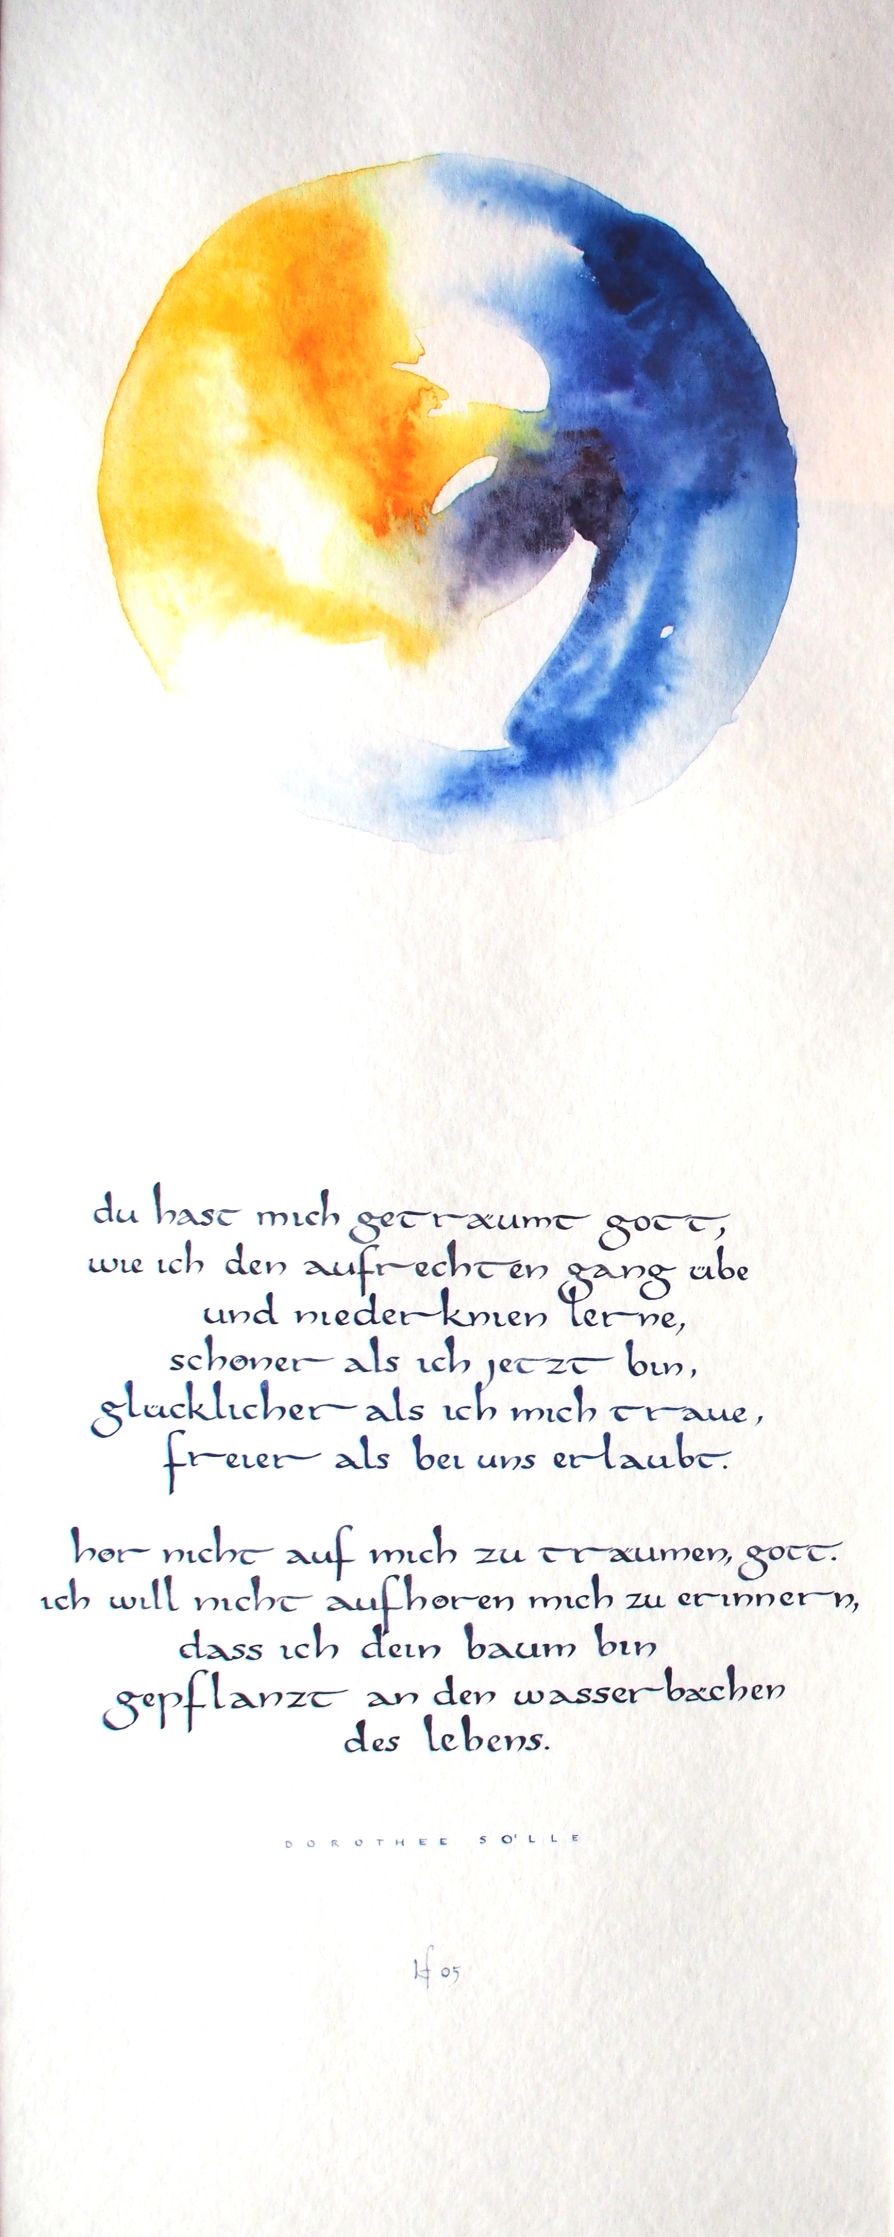 du hast mich geträumt gott,
wie ich den aufrechten gang übe
und niederknien lerne,
schöner als ich jetzt bin,
glücklicher als ich mich traue,
freier als bei uns erlaubt.
hör nicht auf mich zu träumen, gott.
ich will nicht aufhören mich zu erinnern,
dass ich dein baum bin
gepflanzt an den wasserbächen
des lebens.
DOROTHEE SÖLLE
05